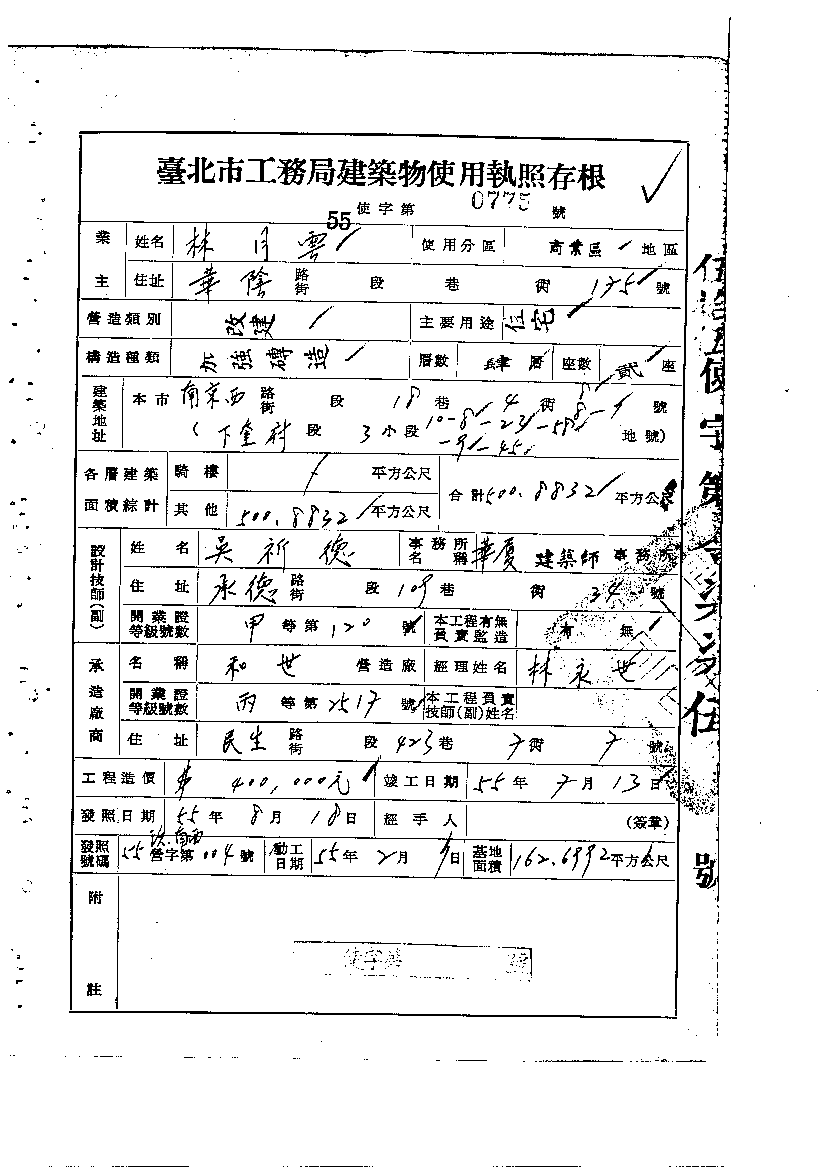 臺北市工務局建築物使用執照存根
55 使字第 0775 號
業主 姓名 林月雲 使用分區 商業區 地區
住址 華陰 路街 段 巷 衖 175 號
營造類別 改建 主要用途 住宅
構造種類 加強磚造 層數 肆層 座數 貳座
建築地址 本市 南京西 路街 段 18 巷 4 衖 號
(下奎府 段 3 小段 地號)
各層建築面積綜計 騎樓 平方公尺 合計 500.8832 平方公尺
其他 500.8832 平方公尺
設計技師(副) 姓名 吳祈德 事務所名稱 華廈 建築師 事務所
住址 承德 路街 段 109 巷 衖 34 號
開業證等級號數 甲 等第 120 號 本工程有無負責監造 有 無
承造廠商 名稱 和世 營造廠 經理姓名 林永世
開業證等級號數 丙 等第 2517 號 本工程負責技師(副)姓名
住址 民生 路街 段 423 巷 7 衖 7 號
工程造價 400,000元 竣工日期 55年7月13日
發照日期 55年8月18日 經手人 (簽章)
發照號碼 55 營字第 004 號 動工日期 55年2月 日 基地面積 162.6992 平方公尺
附註
使字第 號